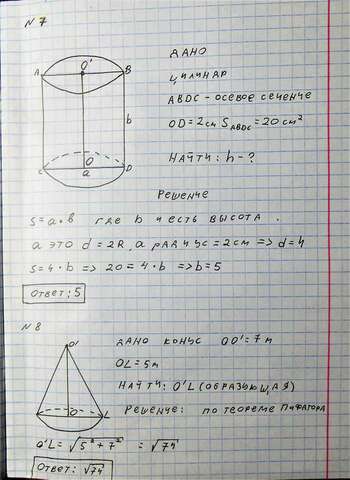 N 7
A O' B
b
C O D
a
ДАНО
ЦИЛИНДР
ABDC - ОСЕВОЕ СЕЧЕНИЕ
OD = 2см S ABDC = 20 см²
НАЙТИ: h - ?
РЕШЕНИЕ
S = a · b где b и есть высота.
a это d = 2R, а радиус = 2см => d = 4
S = 4 · b => 20 = 4 · b => b = 5
ОТВЕТ: 5
N 8
O'
O L
ДАНО КОНУС OO' = 7 м
OL = 5 м
НАЙТИ: O'L (ОБРАЗУЮЩАЯ)
РЕШЕНИЕ: ПО ТЕОРЕМЕ ПИФАГОРА
O'L = √5² + 7² = √74
ОТВЕТ: √74